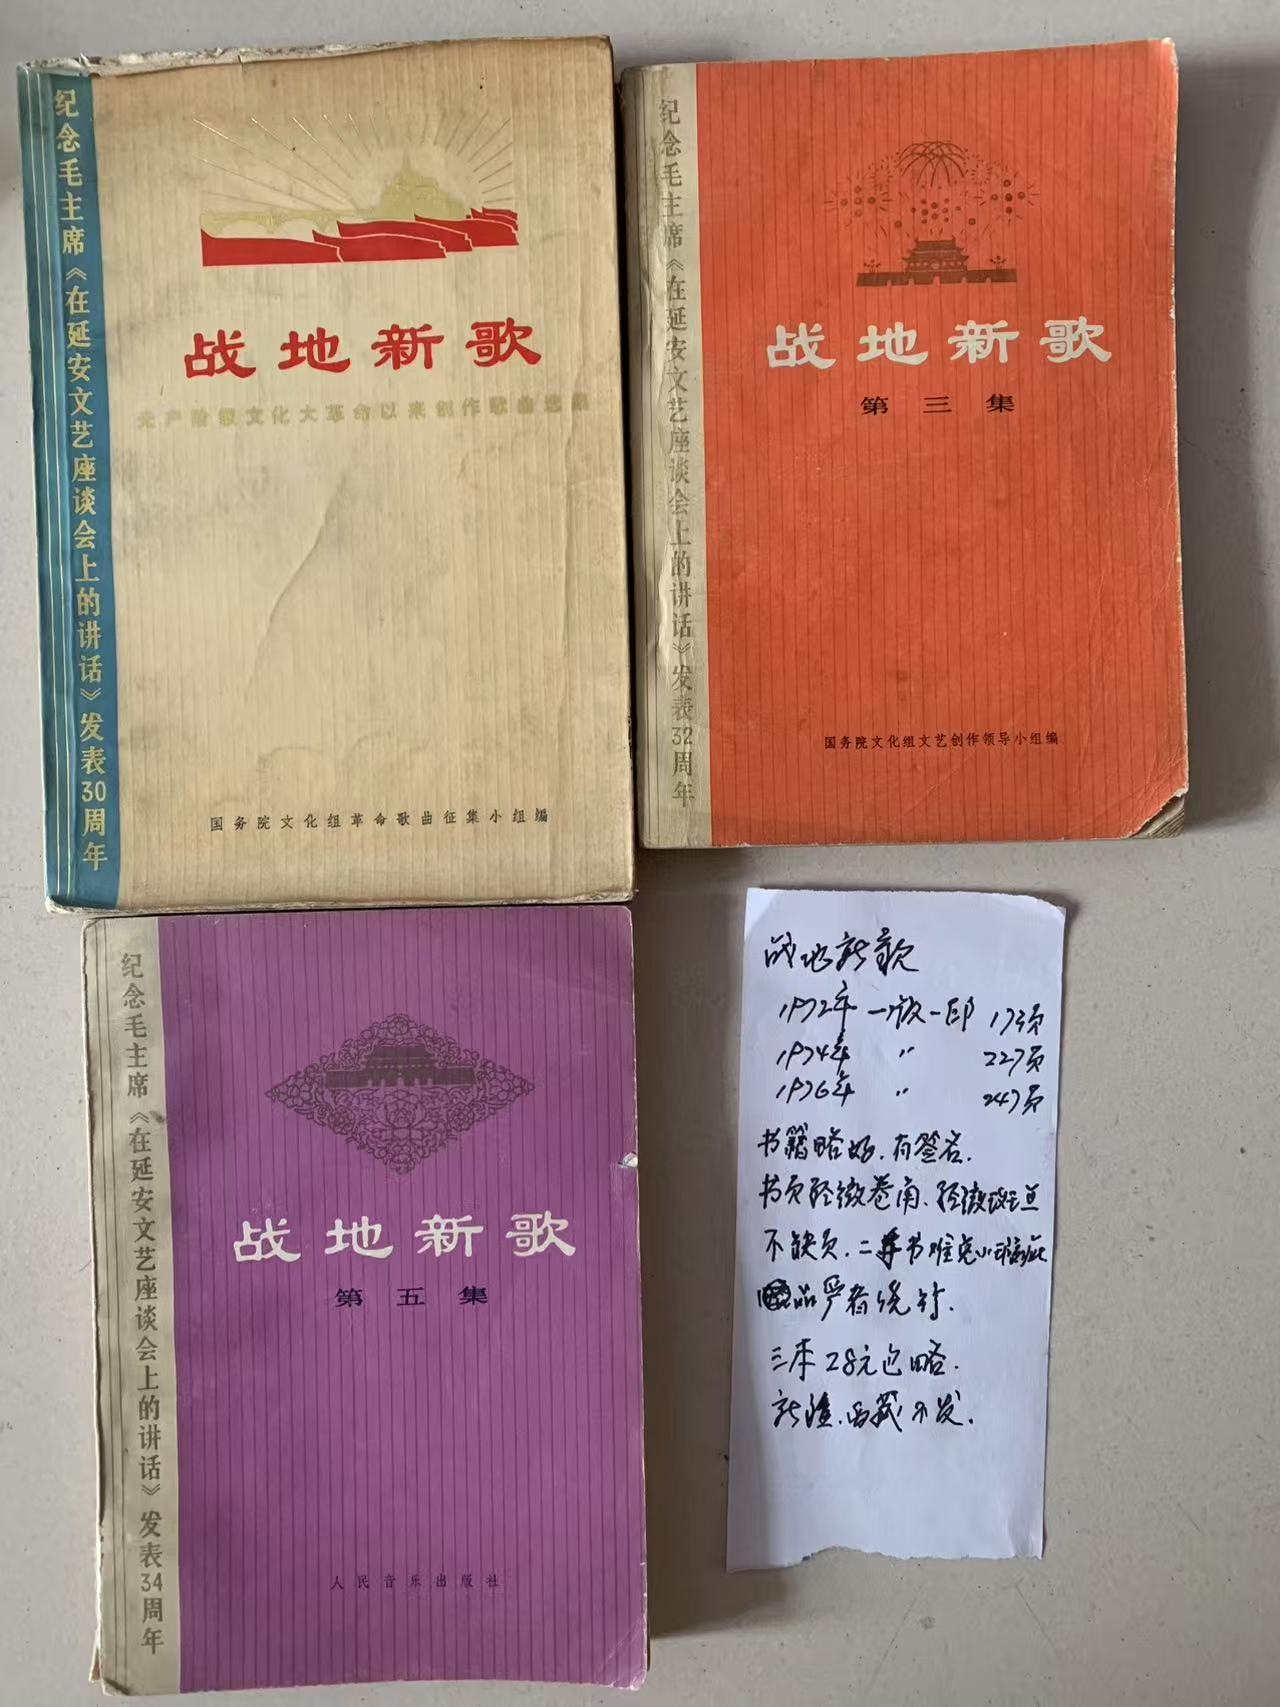 纪念毛主席《在延安文艺座谈会上的讲话》发表30周年
战地新歌
无产阶级文化大革命以来创作歌曲选集
国务院文化组革命歌曲征集小组编
纪念毛主席《在延安文艺座谈会上的讲话》发表32周年
战地新歌
第三集
国务院文化组文艺创作领导小组编
纪念毛主席《在延安文艺座谈会上的讲话》发表34周年
战地新歌
第五集
人民音乐出版社
战地新歌
1972年 一版一印 173页
1974年 〃 227页
1976年 〃 247页
书籍略好.有签名.
书页轻微卷角、轻微斑点
不缺页.二手书难免小瑕疵
品严者绕行.
三本28元包略.
新疆.西藏不发.